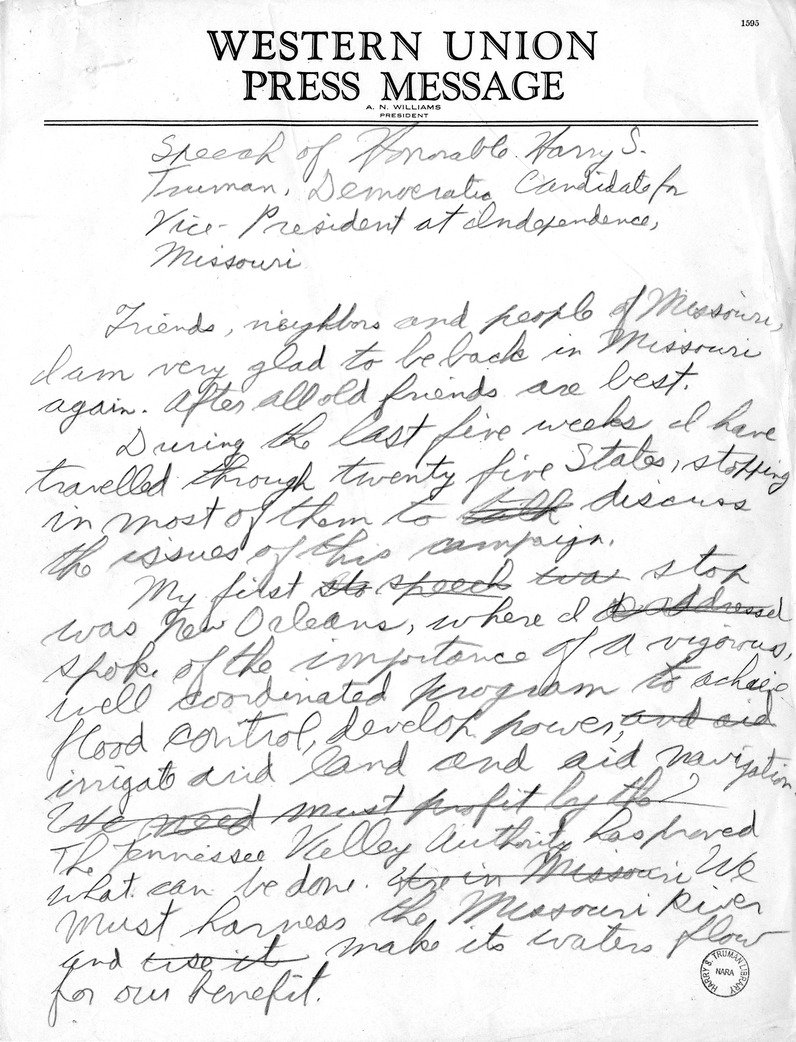 1595
WESTERN UNION
PRESS MESSAGE
A. N. WILLIAMS
PRESIDENT
Speech of Honorable Harry S.
Truman, Democratic Candidate for
Vice-President at Independence,
Missouri
Friends, neighbors and people of Missouri,
I am very glad to be back in Missouri
again. After all old friends are best.
During the last five weeks I have
travelled through twenty five States, stopping
in most of them to talk discuss
the issues of this campaign.
My first sto speech was stop
was New Orleans, where I addressed
spoke of the importance of a vigorous,
well coordinated program to achieve
flood control, develop power, and aid
irrigate arid land and aid navigation.
We need must profit by the
The Tennessee Valley Authority has proved
what can be done. Here in Missouri We
must harness the Missouri River
and use it make its waters flow
for our benefit.
HARRY S. TRUMAN LIBRARY
NARA